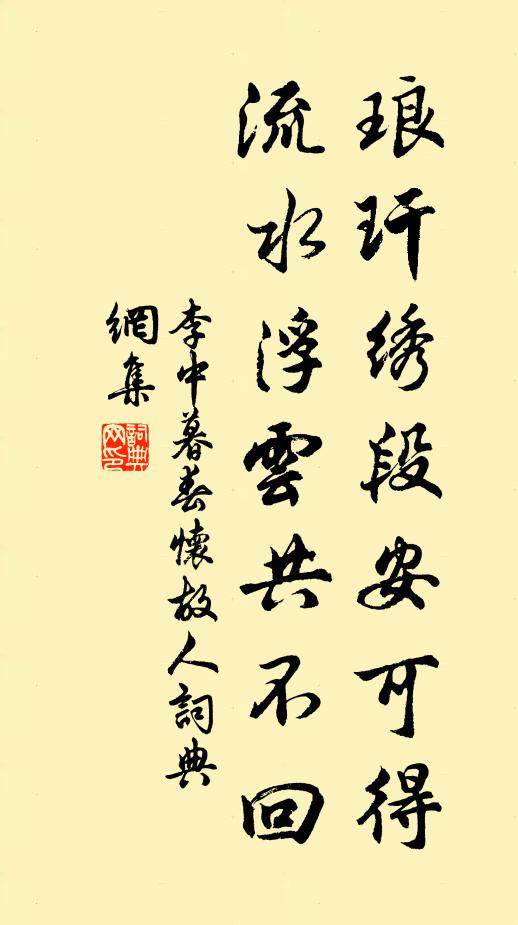 琅玕绣段安可得
流水浮雲共不回
李中暮春懷故人詞典
網集
詞典
网印